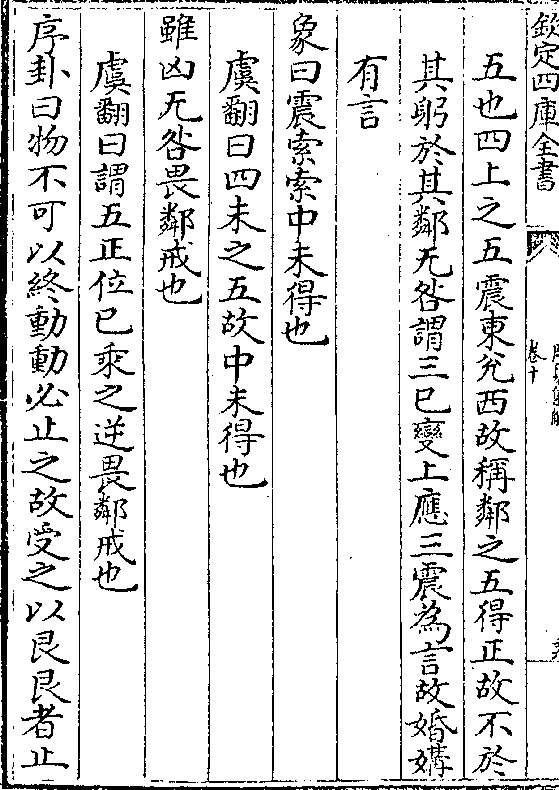 欽定四庫全書
卷十
五也四上之五震東兌西故稱鄰之五得正故不於
其躬於其鄰无咎謂三已變上應三震為言故婚媾
有言
象曰震索索中未得也
虞翻曰四未之五故中未得也
雖凶无咎畏鄰戒也
虞翻曰謂五正位已乘之逆畏鄰戒也
序卦曰物不可以終動動必止之故受之以艮艮者止